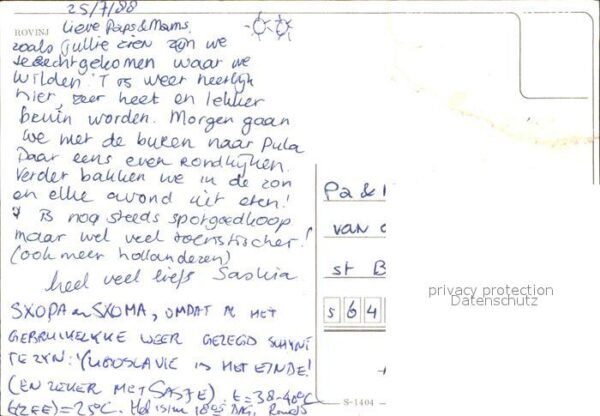 25/7/88
ROVINJ
Lieve Paps & Mams.
zoals jullie zien zijn we
terechtgekomen waar we
wilden. 'T is weer heerlijk
hier, zeer heet en lekker
bruin worden. Morgen gaan
we met de buren naar Pula
Daar eens even rondkijken.
Verder bakken we in de zon
en elke avond uit eten!
'T Is nog steeds spotgoedkoop
maar wel veel toeristischer!
(ook meer hollanders)
heel veel liefs Saskia
SXOPA en SXOMA, OMDAT IK HET
GEBRUIKELIJKE WEER GEZEGD SCHIJNT
TE ZIJN: YUGOSLAVIE IS HET EINDE!
(EN ZEKER MET SASJE). t=38-40°C
t(ZEE)=25°C. Het is nu 18e DAG,
Pa &
van
st B
5 6 4
privacy protection
Datenschutz
S-1404